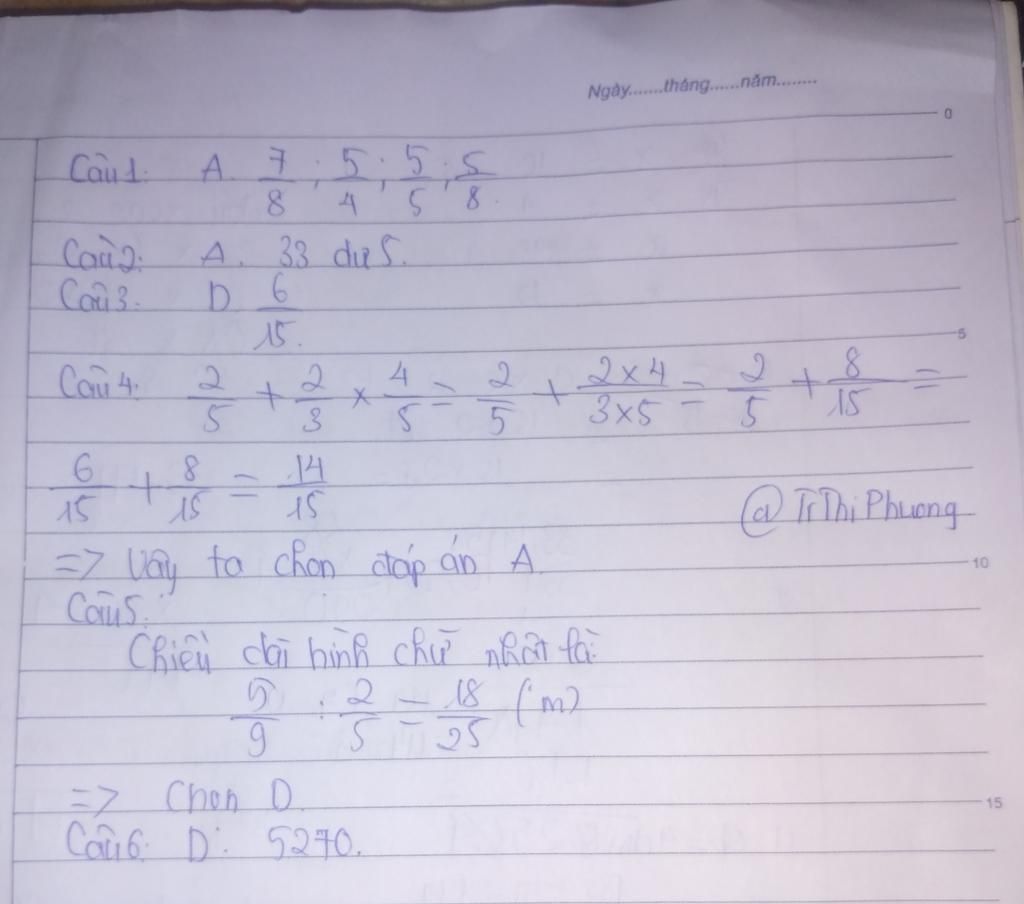 Ngày.......tháng......năm........
0
Câu1: A. 7/8 ; 5/4 ; 5/5 ; 5/8.
Câu2: A. 33 dư 5.
Câu3: D. 6/15.
5
Câu4: 2/5 + 2/3 × 4/5 = 2/5 + 2×4/3×5 = 2/5 + 8/15 =
6/15 + 8/15 = 14/15
@ TrThiPhuong
=> Vậy ta chọn đáp án A.
10
Câu5:
Chiều dài hình chữ nhật là:
5/9 : 2/5 = 18/25 (m)
=> Chọn D.
15
Câu6: D. 5270.